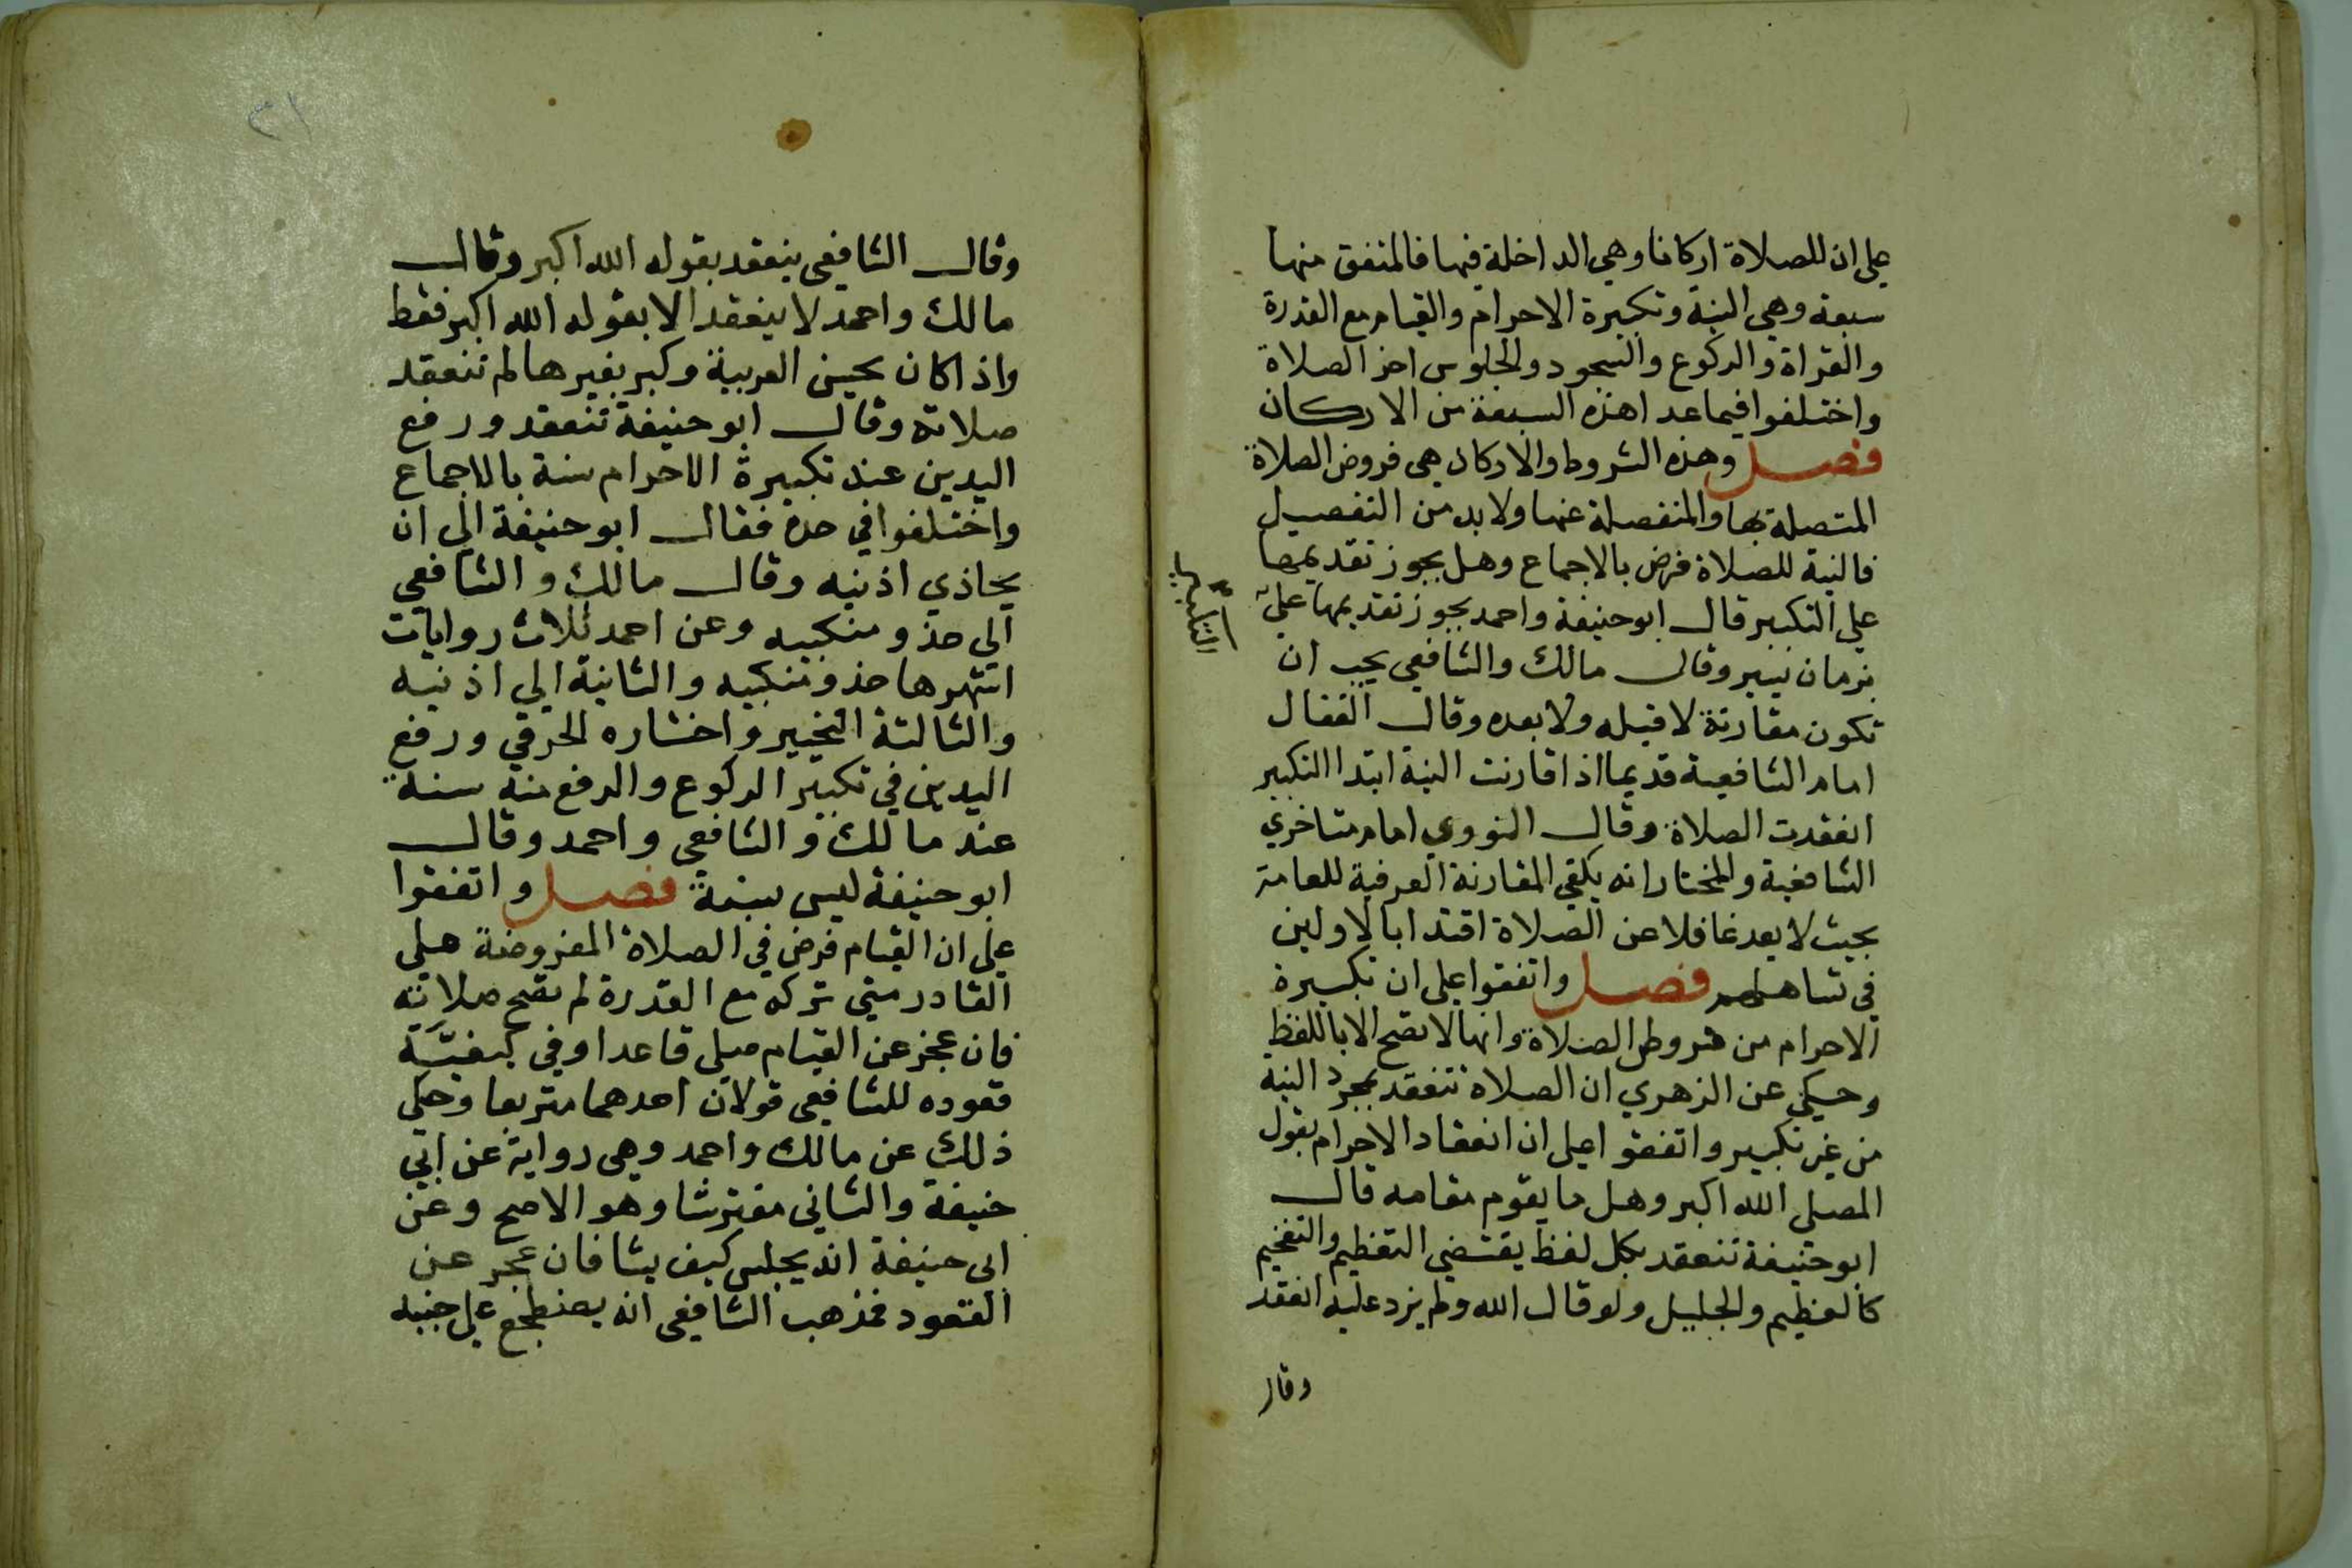 على ان للصلاة اركانا وهي الداخلة فيها فالمتفق منها
سبعة وهي النية وتكبيرة الاحرام والقيام مع القدرة
والقراة والركوع والسجود والجلوس اخر الصلاة
واختلفوا فيما عدا هذه السبعة من الاركان
فصل وهذه الشروط والاركان هي فروض الصلاة
المتصلة بها والمنفصلة عنها ولا بد من التفصيل
فالنية للصلاة فرض بالاجماع وهل يجوز تقديمها
على التكبير قال ابو حنيفة واحمد يجوز تقديمها على
التكبير
بزمان يسير وقال مالك والشافعي يجب ان
تكون مقارنة لا قبله ولا بعده وقال القفال
امام الشافعية قديما اذا قارنت النية ابتدا التكبير
انعقدت الصلاة وقال النووي امام متاخري
الشافعية والمختار انه يكفي المقارنة العرفية للعامة
بحيث لا يعد غافلا عن الصلاة اقتدا بالاولين
في تساهلهم فصل واتفقوا على ان تكبيرة
الاحرام من شروط الصلاة وانها لا تصح الا باللفظ
وحكي عن الزهري ان الصلاة تنعقد بمجرد النية
من غير تكبير واتفقوا على ان انعقاد الاحرام بقول
المصلي الله اكبر وهل ما يقوم مقامه قال
ابو حنيفة تنعقد بكل لفظ يقتضي التعظيم والتفخيم
كالعظيم والجليل ولو قال الله ولم يزد عليه انعقد
وقال
٣١
وقال الشافعي ينعقد بقوله الله اكبر وقال
مالك واحمد لا ينعقد الا بقوله الله اكبر فقط
واذا كان يحسن العربية وكبر بغيرها لم تنعقد
صلاته وقال ابو حنيفة تنعقد ورفع
اليدين عند تكبيرة الاحرام سنة بالاجماع
واختلفوا في حده فقال ابو حنيفة الى ان
يحاذي اذنيه وقال مالك والشافعي
الى حذو منكبيه وعن احمد ثلاث روايات
اشهرها حذو منكبيه والثانية الى اذنيه
والثالثة التخيير واختاره الخرقي ورفع
اليدين في تكبير الركوع والرفع منه سنة
عند مالك والشافعي واحمد وقال
ابو حنيفة ليس بسنة فصل واتفقوا
على ان القيام فرض في الصلاة المفروضة على
القادر متى تركه مع القدرة لم تصح صلاته
فان عجز عن القيام صلى قاعدا وفي كيفية
قعوده للشافعي قولان احدهما متربعا وحكي
ذلك عن مالك واحمد وهي رواية عن ابي
حنيفة والثاني مفترشا وهو الاصح وعن
ابي حنيفة انه يجلس كيف يشا فان عجز عن
القعود فمذهب الشافعي انه يضطجع على جنبه